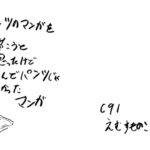 ンツのマンガを
描こうと
思ったけど
んでパンツじゃ
かった
マンガ
C91